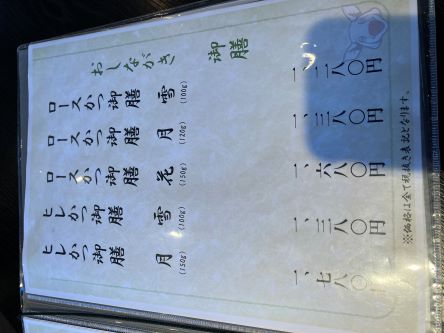 おしながき
御膳
ロースかつ御膳 雪 (100g) 一、二八〇円
ロースかつ御膳 月 (120g) 一、三八〇円
ロースかつ御膳 花 (150g) 一、六八〇円
ヒレかつ御膳 雪 (100g) 一、三八〇円
ヒレかつ御膳 月 (150g) 一、七八〇円
※価格は全て税抜き表記となります。